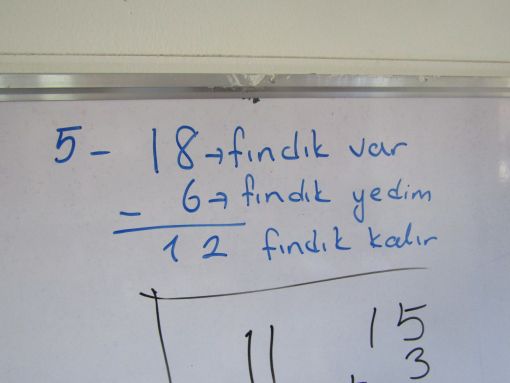 5 - 18 → fındık var
- 6 → fındık yedim
12 fındık kalır
11 15
3